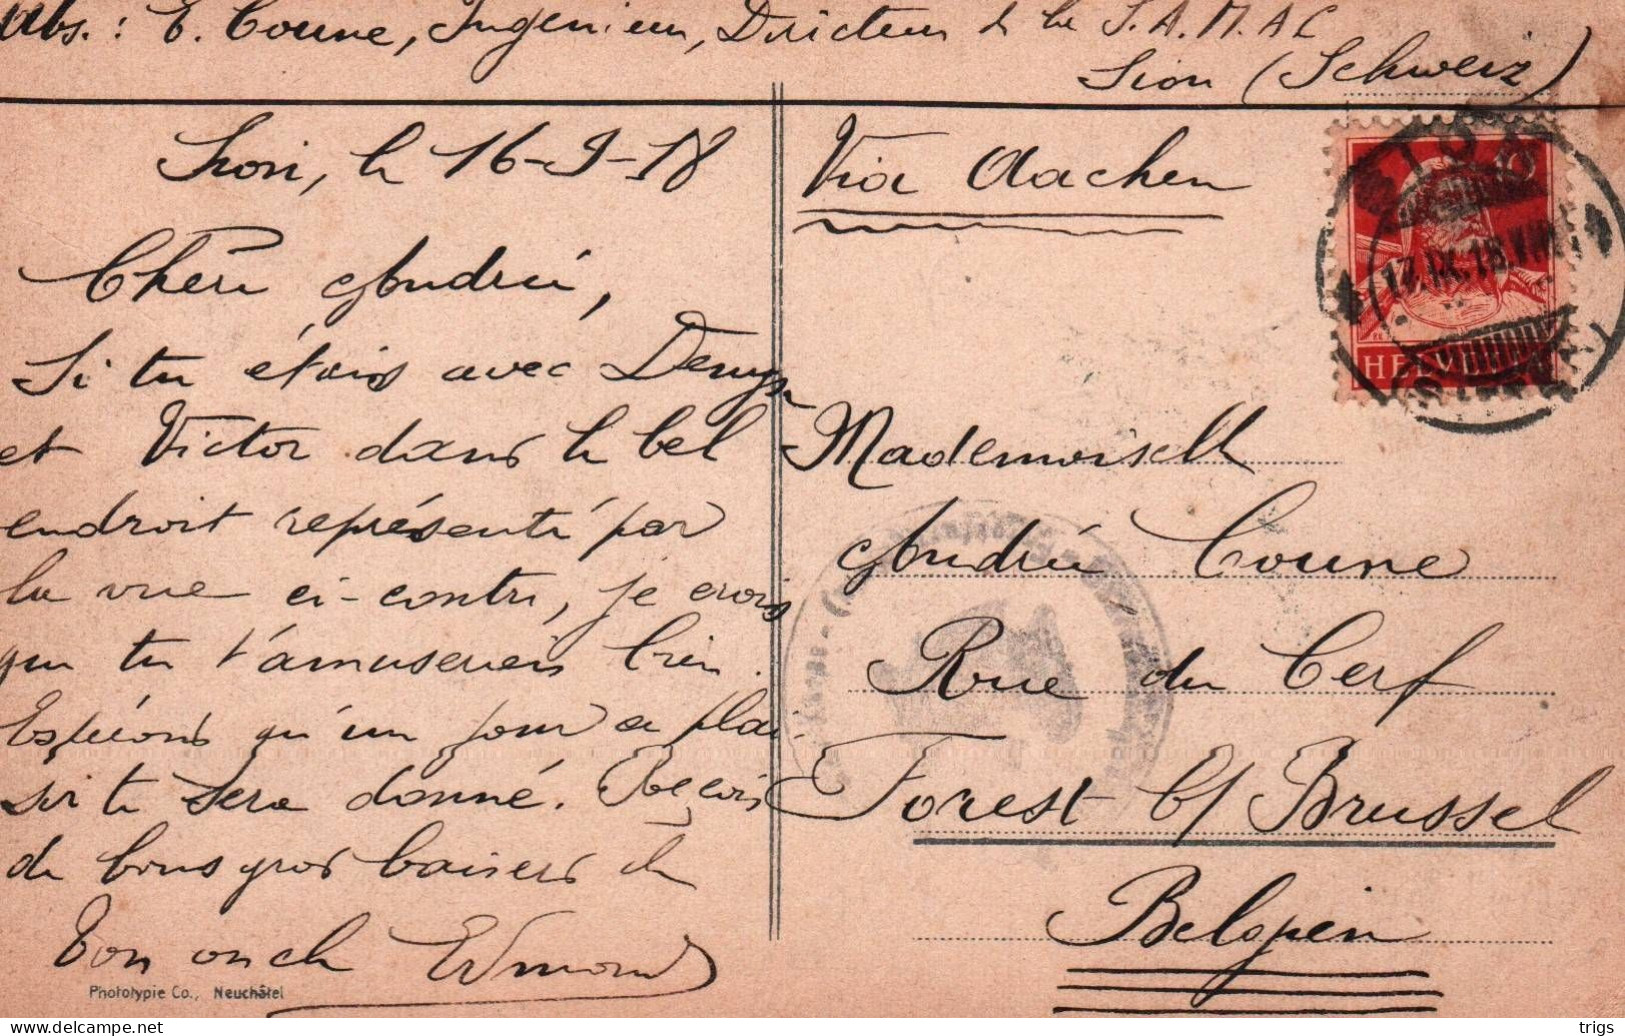 Abs. : E. Coune, Ingénieur, Directeur de la S.A.M.A.L
Sion (Schweiz)
Sion, le 16-9-18
Chère Andrée,
Si tu étais avec Denyse
et Victor dans le bel
endroit représenté par
la vue ci-contre, je crois
que tu t'amuserais bien.
Espérons qu'un jour ce plai-
sir te sera donné. Reçois
de bons gros baisers de
Ton oncle Edmond
Phototypie Co., Neuchâtel
Via Aachen
SION
17.IX.18.VIII
HELVETIA
Mademoiselle
Andrée Coune
Rue du Cerf
Forest b/ Brussel
Belgien
trigs